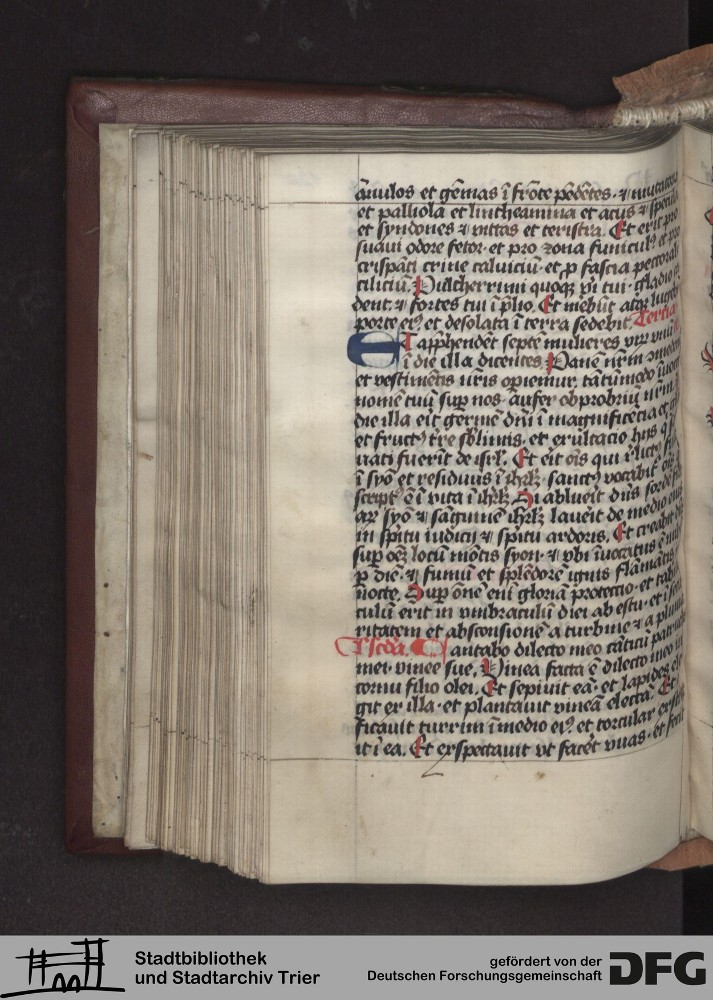 ānulos et gēmas ī frōte pēdētes · ⁊ mutatoria
et palliola et lintheamina et acus ⁊ specula
et syndones ⁊ vittas et teristra. Et erit pro
suavi odore fetor · et pro zona funiculꝰ et pro
crispāti crine calviciū · et p fascia pectorali
ciliciū. Pulcherrimi quoqꝫ vi tui · gladio ca
dent · ⁊ fortes tui ī p̄lio. Et mebūt atqꝫ lugebt
porte eiꝰ et desolata ī terra sedebit. Tertia
ET app̄hendēt septē mulieres virū unū
ī die illa dicentes. Panē nr̄m comedem
et vestimētis nr̄is opiemur. tātūmodo īvoce
nomē tuū sup nos · aufer obprobriū nr̄m. In
die illa eīt germē dn̄i ī magnificētia et gl
et fructꝰ t're sblimis · et exultacio hijs q sal
vati fuerīt de isrl̄. Et eīt oīs qui relictꝰ fuīt
ī syō et residuus ī ihrlꝫ · sanctꝰ vocabīt oīs
scriptꝰ ē ī vita ī ihrlꝫ Si abluerīt dn̄s sordē fi
aꝝ syō ⁊ sāguinē ihrlꝫ lavēit de medio eius
in spītu iudicij ⁊ spītu ardoris. Et creabit dn̄s
sup oēꝫ locū mōtis syon · ⁊ vbi īvocatus ē nubē
p diē · ⁊ fumū et splēdorē ignis flāmātis
nocte. Sup ōnē enī gloriā protectio · et taber
culū erit in vmbraculū diei ab estu · et ī secu
ritatem et absconsionē a turbine ⁊ a pluvia
Ca sc̄da. Cantabo dilecto meo cāticū patruelis
mei · vinee sue. Vinea facta ē dilecto meo in
cornu filio olei. Et sepivit eā · et lapides ele
git ex illa · et plantavit vineā electā. Et edi
ficavit turrim ī medio eiꝰ et torcular extrux
it ī ea. Et exspectavit ut facēt vuas · et fecit
Stadtbibliothek
und Stadtarchiv Trier
gefördert von der
Deutschen Forschungsgemeinschaft
DFG